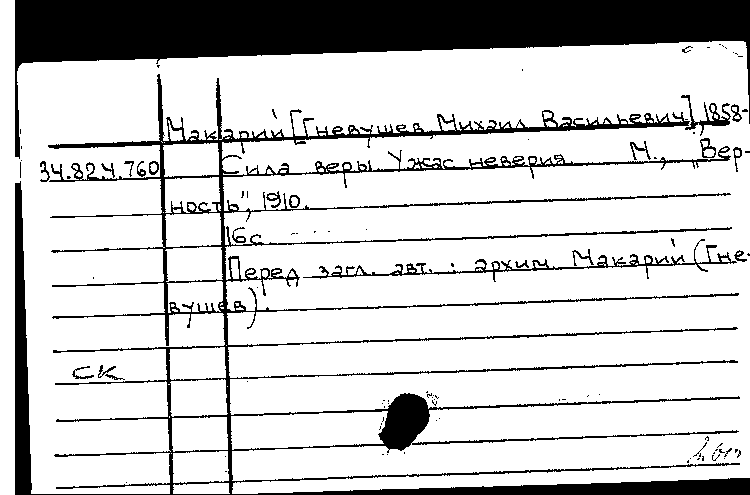 Макарий [Гневушев, Михаил Васильевич], 1858-
34.82.4.760 Сила веры. Ужас неверия. М., "Вер-
ность", 1910.
16с.
Перед загл. авт.: архим. Макарий (Гне-
вушев).
СК